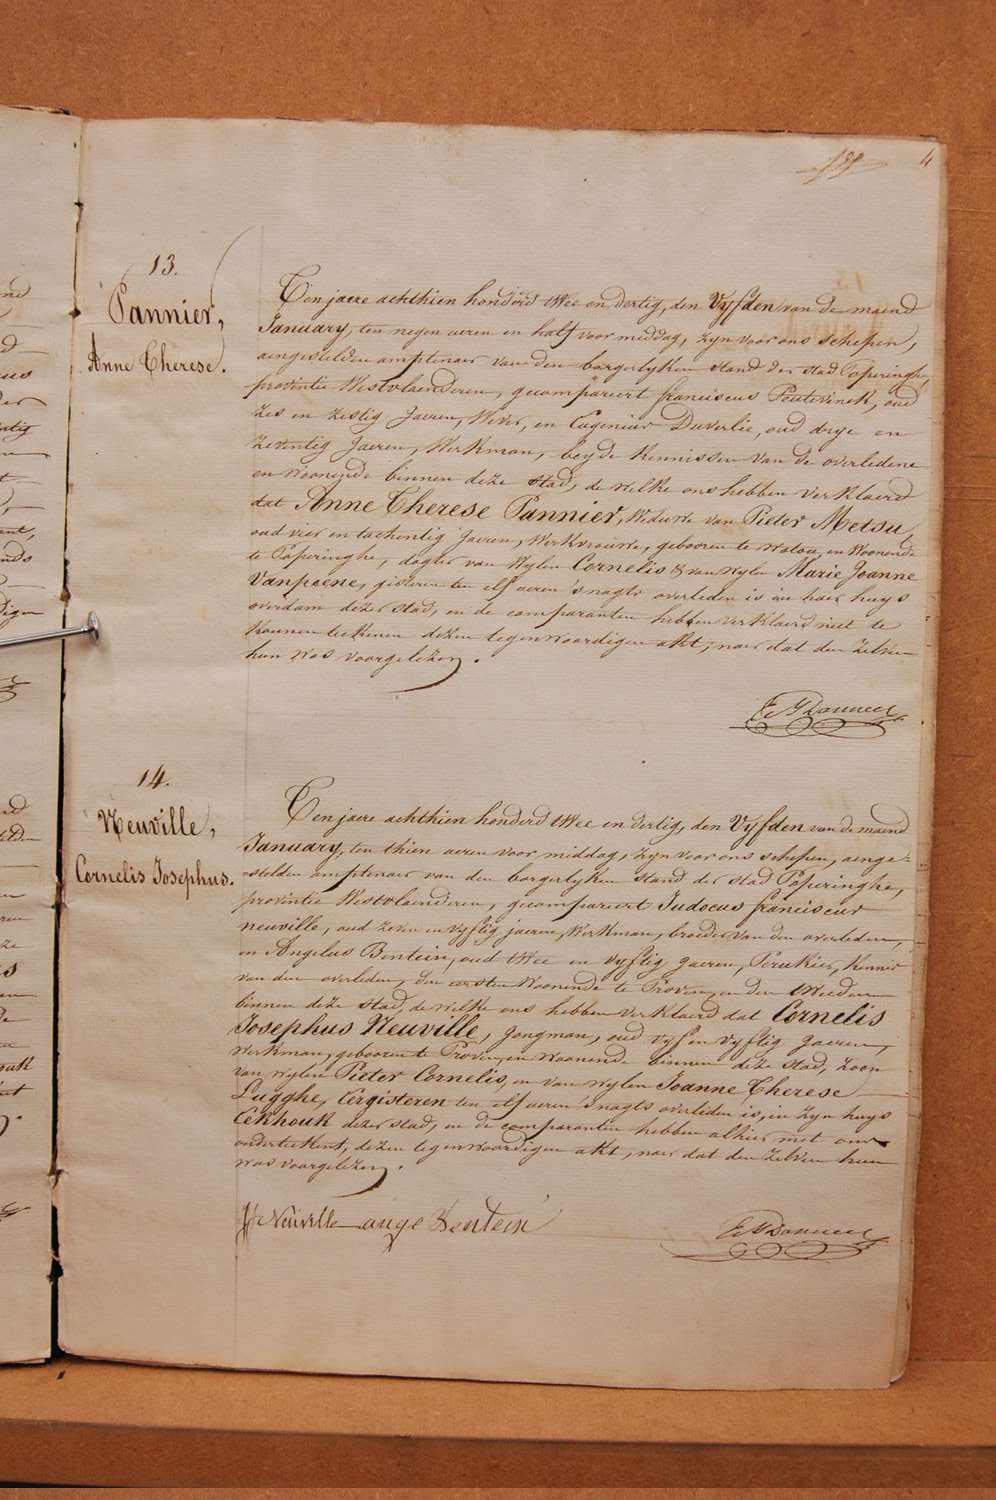 4
13.
Pannier,
Anne Therese.
Ten jaere achthien honderd twee en dertig, den Vyfden van de maend
January, ten negen aeren en half voor middag, zyn voor ons schepen,
aengestelden amptenaer van den borgerlyken stand der stad Poperinghe,
provintie Westvlaenderen, gecompareert franciscus Peutevinck, oud
zes en zestig Jaeren, Wever, en Eugenius Duverlie, oud drye en
zeventig Jaeren, Werkman, beyde Kennissen van de overledene
en woonende binnen deze stad, de welke ons hebben verklaerd
dat Anne Therese Pannier, Weduwe van Pieter Metsu,
oud vier en tachentig Jaeren, Werkvrouwe, gebooren te watou, en Woonende
te Poperinghe, dogter van Wylen Cornelis & van wylen Marie Joanne
Vanpeene, gisteren ten elf aeren s'nagts overleden is in haer huys
overdam dezer stad, en de comparanten hebben verklaerd niet te
konnen teekenen dezen tegenwoordigen akt, naer dat den zelven
hun was voorgelezen.
14.
Neuville,
Cornelis Josephus.
Ten jaere achthien honderd twee en dertig, den Vyfden van de maend
January, ten thien aeren voor middag, zyn voor ons schepen, aenge=
stelden amptenaer van den borgerlyken stand der stad Poperinghe,
provintie Westvlaenderen, gecompareert Judocus franciscus
neuville, oud zeven en vyftig jaeren, Werkman, broeder van den overleden,
en Angelus Bentein, oud twee en vyftig jaeren, Perukier, Kennis
van den overleden, den eersten woonende te Proven, en den tweeden
binnen deze stad, de welke ons hebben verklaerd dat Cornelis
Josephus Neuville, jongman, oud vyf en vyftig jaeren,
Werkman, gebooren te Proven, en woonende binnen deze stad, zoon
van wylen Pieter Cornelis, en van wylen Joanne Therese
Lugghe, Eergisteren ten elf aeren s'nagts overleden is, in zyn huys
Eekhouk dezer stad, en de comparanten hebben alhier met ons
onderteekent, dezen tegenwoordigen akt, naer dat den zelven hun
was voorgelezen.
Neuville ange Bentein